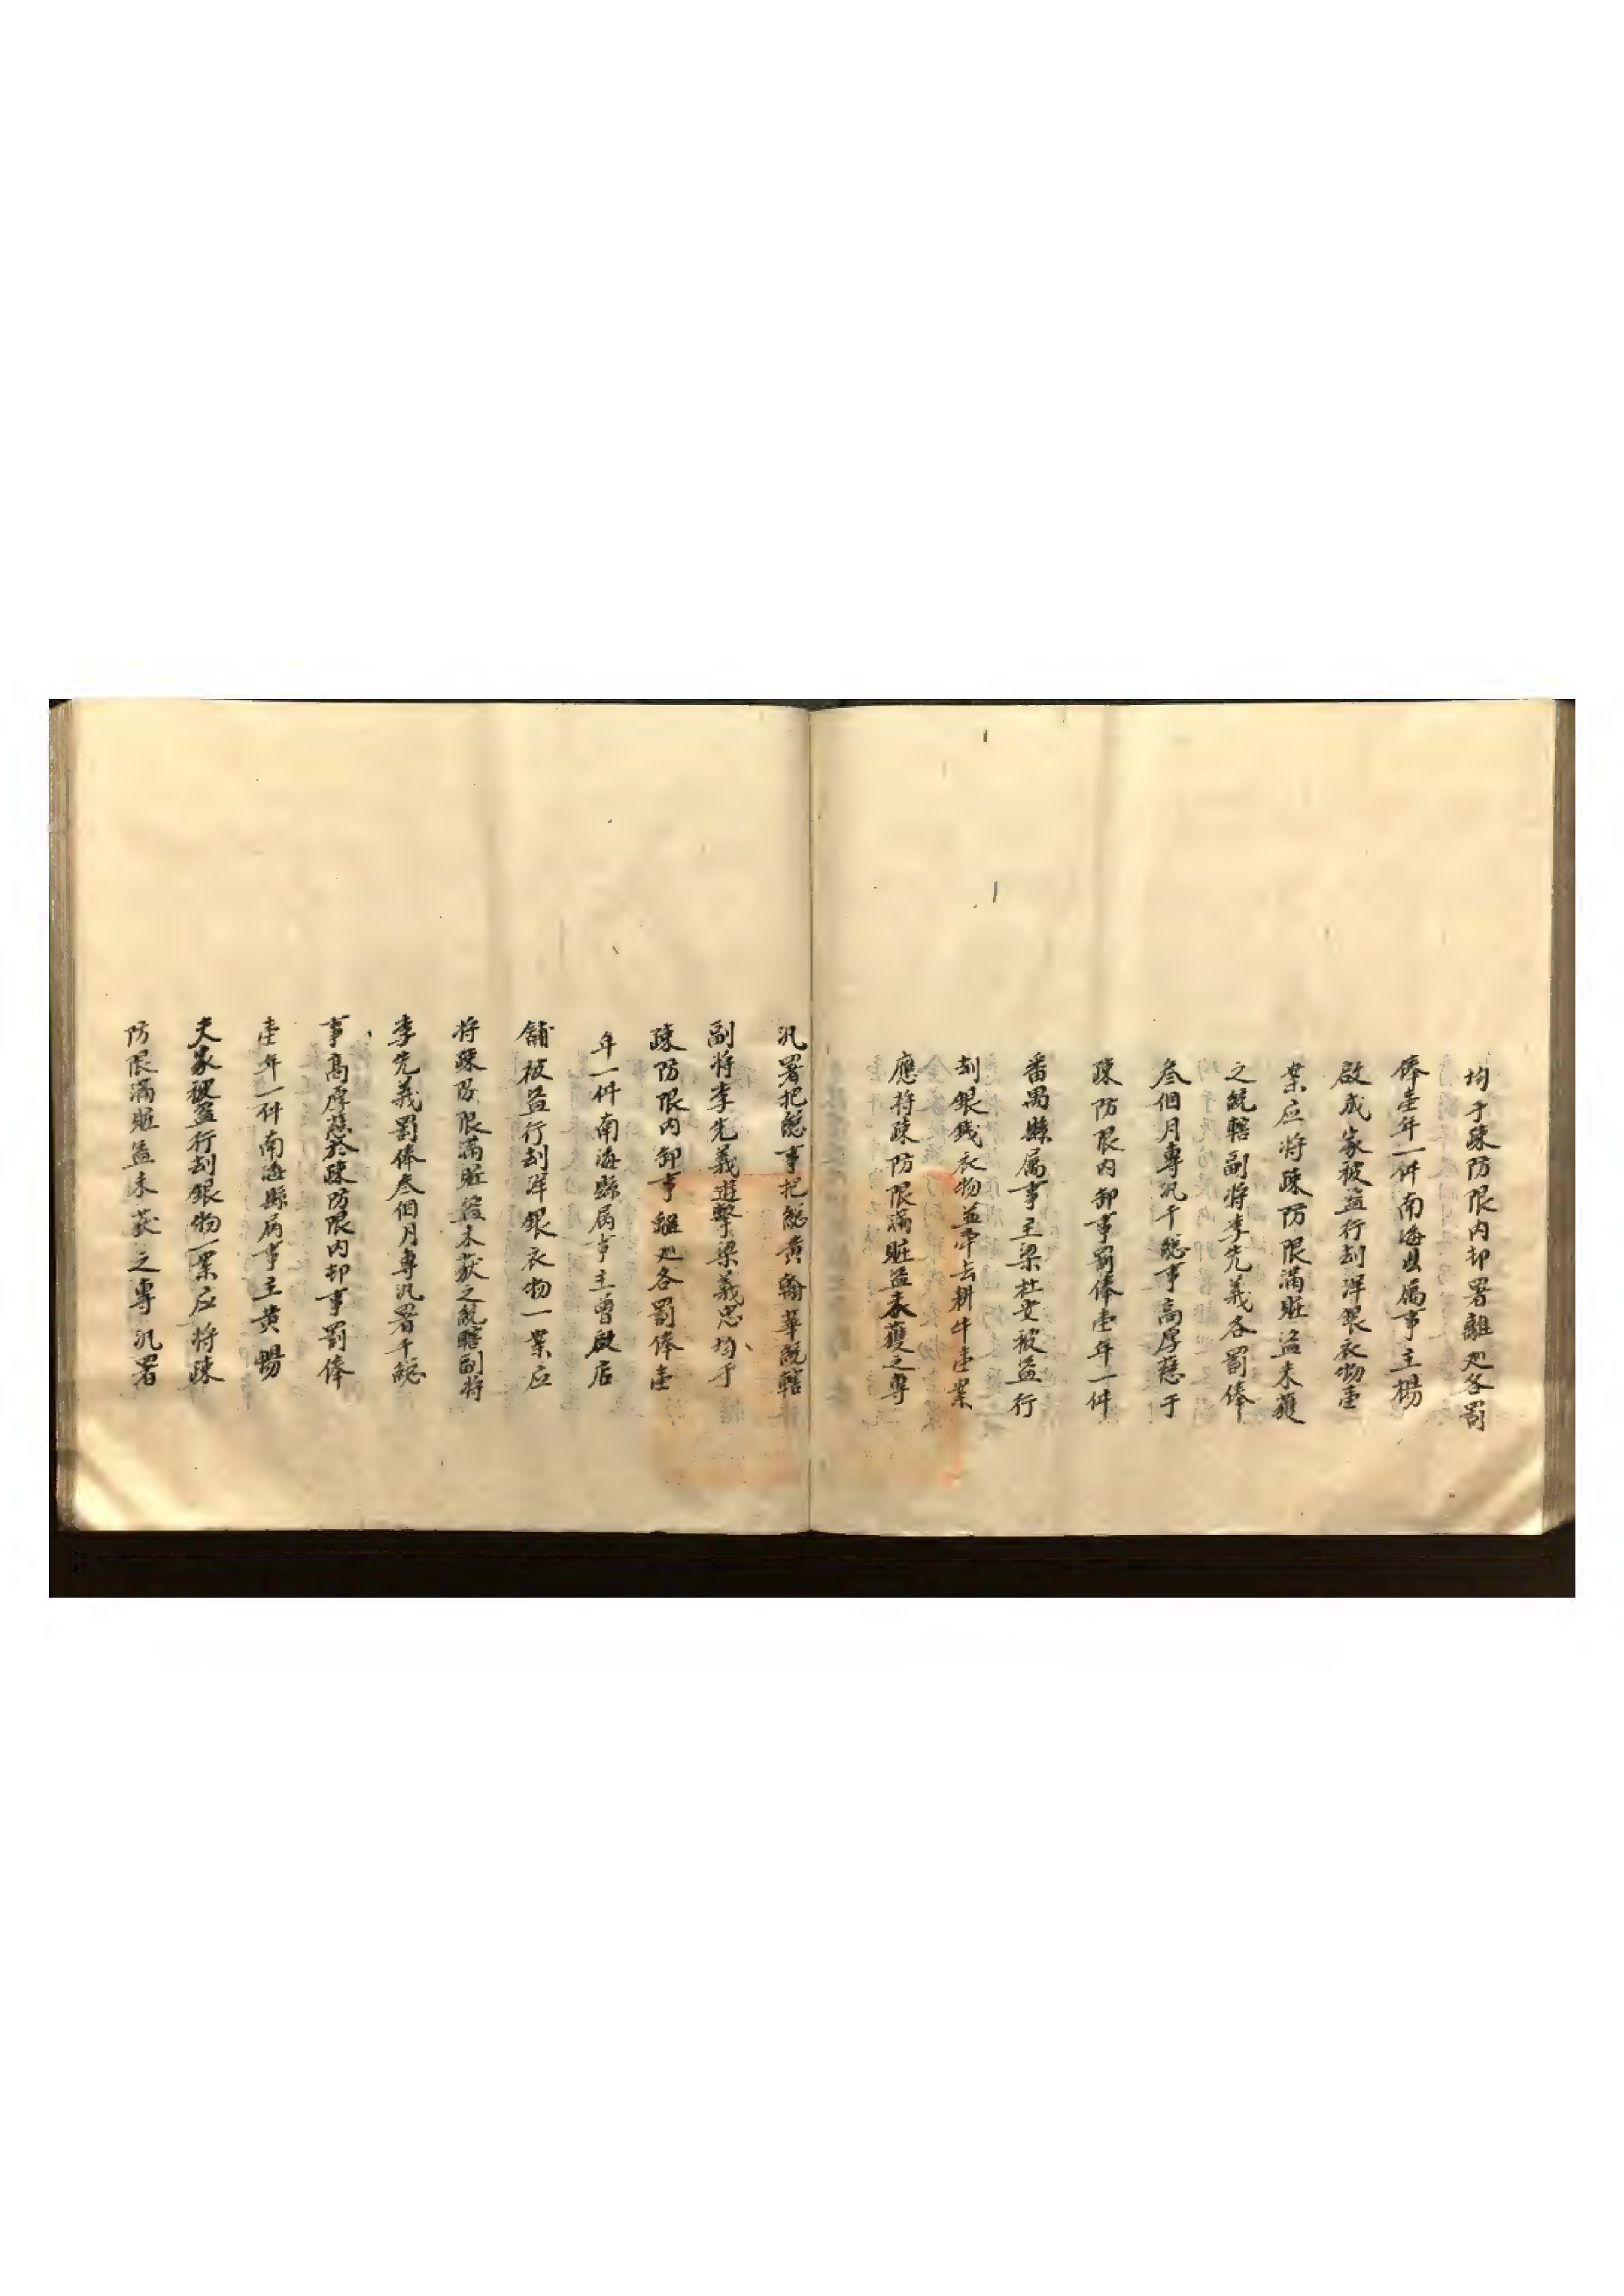 均于疎防限内卸署離処各罰
俸壹年一件南海县属事主楊
啟成家被盜行刦洋銀衣物壹
案应将疎防限滿賍盜未獲
之統轄副将李先義各罰俸
叁個月專汎千総事高厚慈于
疎防限内卸事罰俸壹年一件
番禺縣属事主梁杜文被盜行
刦銀錢衣物並牽去耕牛壹案
應将疎防限滿賍盜未獲之專
汎署把総事把総黄翰華統轄
副将李先義遊擊梁義忠均于
疎防限内卸事離処各罰俸壹
年一件南海縣属事主曾啟店
舖被盜行刦洋銀衣物一案应
将疎防限滿賍盜未获之統轄副将
李先義罰俸叁個月專汎署千総
事高厚慈於疎防限内卸事罰俸
壹年一件南海縣属事主黄暢
夫家被盜行刦銀物一案应将疎
防限滿賍盜未获之專汎署